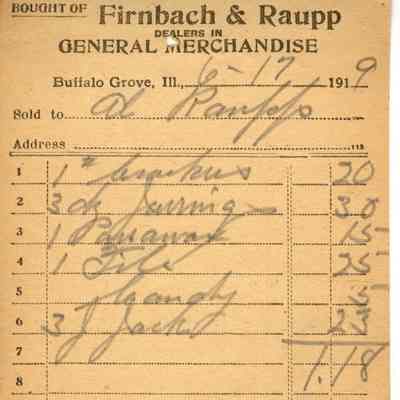 BOUGHT OF Firnbach & Raupp
DEALERS IN
GENERAL MERCHANDISE
Buffalo Grove, Ill., 6-17 1919
Sold to Al Raupp
Address 113
1 1 # 20
2 3 dz 30
3 1 15
4 1 25
5 Candy 15
6 3 25
7 1.18
8